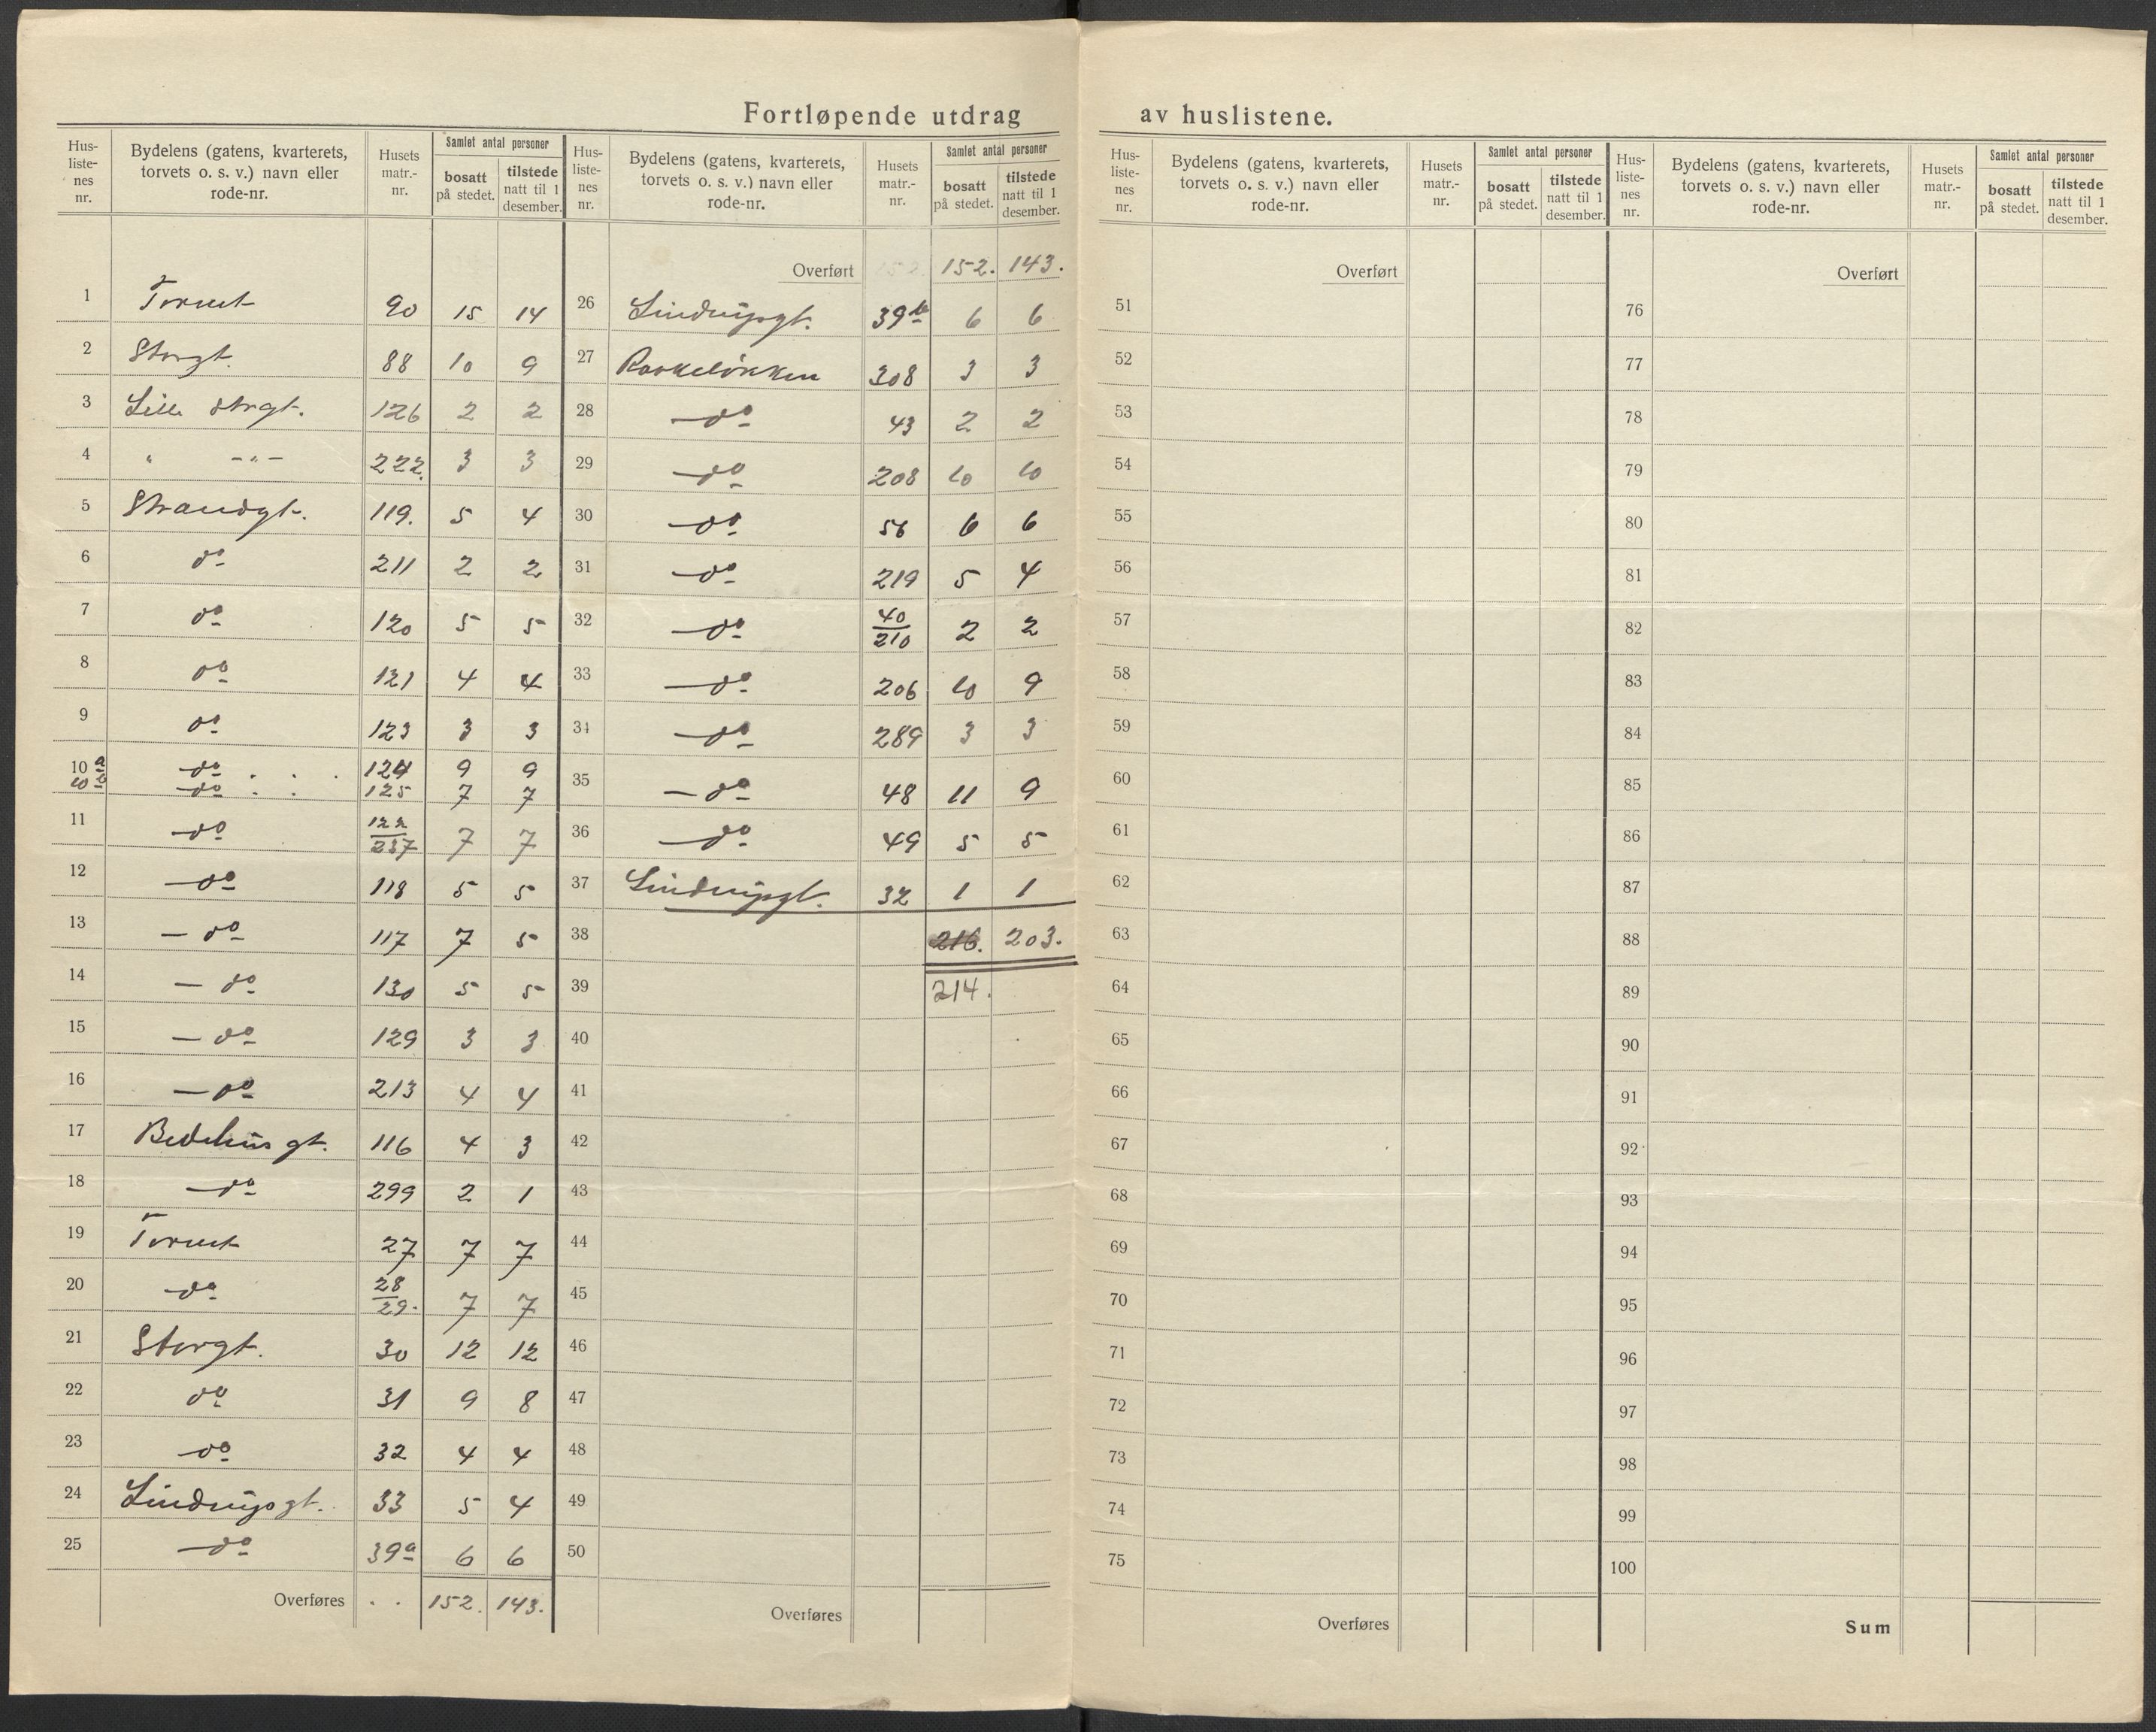 Fortløpende utdrag av huslistene.
Hus-liste-nes nr. Bydelens (gatens, kvarterets, torvets o. s. v.) navn eller rode-nr. Husets matr.-nr. Samlet antal personer bosatt på stedet. tilstede natt til 1 desember.
1 Torvet 90 15 14
2 Storgt. 88 10 9
3 Lille Strgt. 126 2 2
4 " -"- 222. 3 3
5 Strandgt. 119. 5 4
6 do 211 2 2
7 do 120 5 5
8 do 121 4 4
9 do 123 3 3
10 a do . . . 124 9 9
10 b do . . 125 7 7
11 do 122/237 7 7
12 do 118 5 5
13 - do 117 7 5
14 - do 130 5 5
15 - do 129 3 3
16 - do 213 4 4
17 Bedehusgt. 116 4 3
18 do 299 2 1
19 Torvet 27 7 7
20 do 28/29. 7 7
21 Storgt. 30 12 12
22 do 31 9 8
23 do 32 4 4
24 Lindrupsgt. 33 5 4
25 do 39a 6 6
Overføres . . 152. 143.
Hus-liste-nes nr. Bydelens (gatens, kvarterets, torvets o. s. v.) navn eller rode-nr. Husets matr.-nr. Samlet antal personer bosatt på stedet. tilstede natt til 1 desember.
Overført 152. 143.
26 Lindrupsgt. 39b 6 6
27 Raskeløkken 308 3 3
28 do 43 2 2
29 do 208 10 10
30 do 56 6 6
31 do 219 5 4
32 do 40/210 2 2
33 do 206 10 9
34 do 289 3 3
35 - do 48 11 9
36 do 49 5 5
37 Lindrupsgt. 32 1 1
38 216. 203.
39 214.
40
41
42
43
44
45
46
47
48
49
50
Overføres
Hus-liste-nes nr. Bydelens (gatens, kvarterets, torvets o. s. v.) navn eller rode-nr. Husets matr.-nr. Samlet antal personer bosatt på stedet. tilstede natt til 1 desember.
Overført
51
52
53
54
55
56
57
58
59
60
61
62
63
64
65
66
67
68
69
70
71
72
73
74
75
Overføres
Hus-liste-nes nr. Bydelens (gatens, kvarterets, torvets o. s. v.) navn eller rode-nr. Husets matr.-nr. Samlet antal personer bosatt på stedet. tilstede natt til 1 desember.
Overført
76
77
78
79
80
81
82
83
84
85
86
87
88
89
90
91
92
93
94
95
96
97
98
99
100
Sum